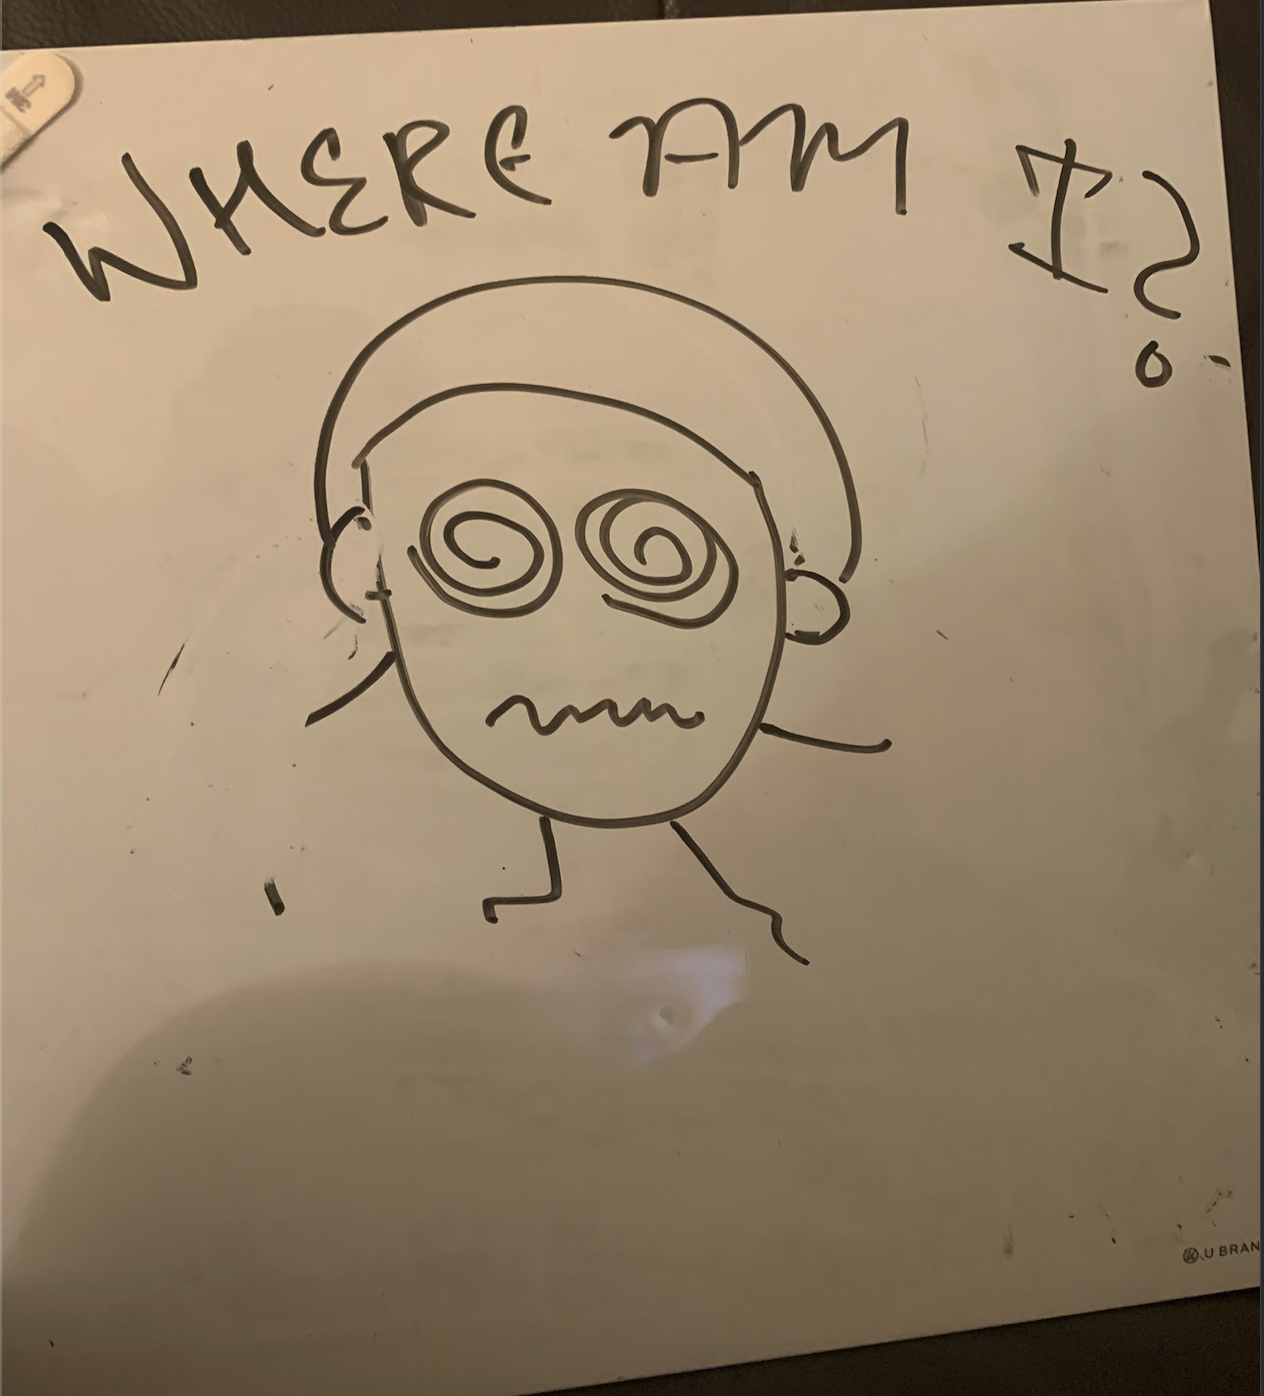 WHERE AM I?
U BRAN